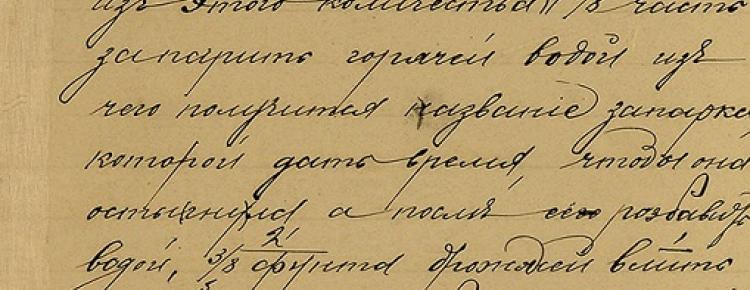 изъ этого количества 1/8 часть
запарить горячей водой изъ
чего получится название запарка
которой дать время, чтобы она
остыгнула а послѣ ею розбавить
водой, 3/8 фунта дрожжей влить